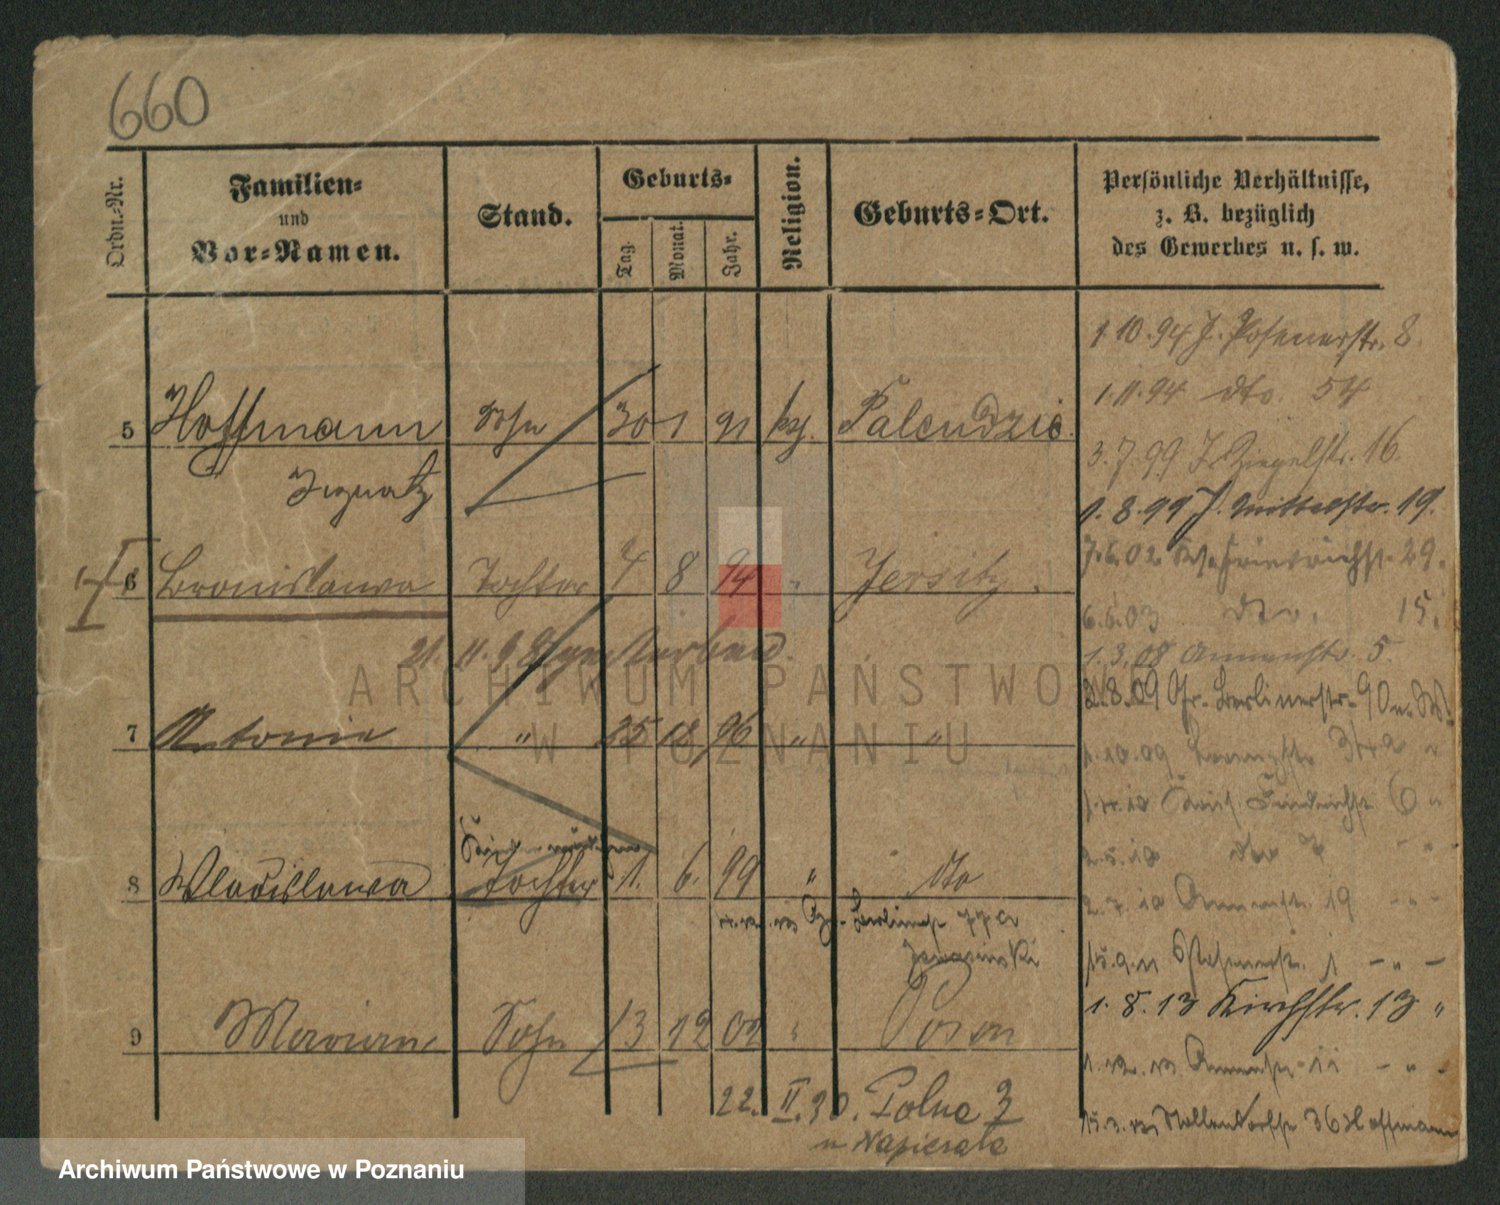 660
Ordn.-Nr.
Familien-
und
Vor-Namen.
Stand.
Geburts-
Tag. Monat. Jahr.
Religion.
Geburts-Ort.
Persönliche Verhältnisse,
z. B. bezüglich
des Gewerbes u. s. w.
1.10.94 J. Posenerstr. 8
1.11.94 dto. 54
5 Hoffmann Sohn 30 1 91 Palendzie
3.7.99 J. Ziegelstr. 16.
Ignatz
1.8.99 J. Mittelstr. 19.
7.6.02 29.
6 Bronislawa Tochter 4 8 94 " Jersitz.
6.6.03 dto. 15.
21. 11. gestorben.
1.3.08 Annenstr. 5.
2.8.09 Gr. Berlinerstr. 90
7 Antonie " 25 96 " "
1.10.09
6 "
2.5.10 dto 7 " "
8 Wladislawa Tochter 1. 6. 99 " dto
2.7.10 Annenstr. 19 - " -
Gr. Berlinerstr
15.9.11 1 - " -
1.8.13 Kirchstr. 13 "
9 Marian Sohn 13 12 02 " Posen
Annenstr. 11 - " -
22. II. 30. Polna 3
36 Hoffmann
u Napierala
ARCHIWUM PAŃSTWOWE
W POZNANIU
Archiwum Państwowe w Poznaniu